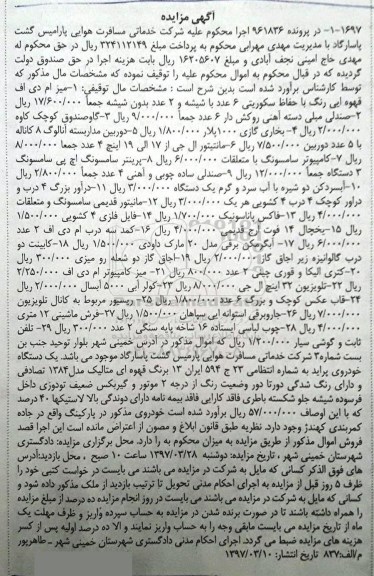 آگهی مزایده
۱-۱۶۹۷- در پرونده ۹۶۱۸۳۶ اجرا محکوم علیه شرکت خدماتی مسافرت هوایی پارامیس گشت
پاسارگاد با مدیریت مهدی مهرابی محکوم به پرداخت مبلغ ۳۲۴۱۱۲۱۴۹ ریال در حق محکوم له
مهدی حاج امینی نجف آبادی و مبلغ ۱۶۲۰۵۶۰۷ ریال بابت هزینه اجرا در حق صندوق دولت
گردیده که در قبال محکوم به اموال محکوم علیه را توقیف نموده که مشخصات مال مذکور که
توسط کارشناس برآورد شده است بدین شرح است : مشخصات مال توقیفی: ۱-میز ام دی اف
قهوه ایی رنگ با حفاظ سکوریتی ۶ عدد با شیشه و ۲ عدد بدون شیشه جمعاً ۱۷/۶۰۰/۰۰۰ ریال
۲-صندلی مبلی دسته آهنی روکش دار ۶ عدد جمعاً ۹/۰۰۰/۰۰۰ ریال ۳-گاوصندوق کوچک کاوه
۲/۰۰۰/۰۰۰ ریال ۴- بخاری گازی ۱۰۰۰پلار ۱/۸۰۰/۰۰۰ ریال ۵-دوربین مداربسته آنالوگ ۸ کاناله
با ۵ عدد دوربین ۷/۵۰۰/۰۰۰ ریال ۶-مانیتور ال جی از 17 الی 19 اینچ ۴ عدد جمعا ۸/۰۰۰/۰۰۰
ریال ۷-کامپیوتر سامسونگ با متعلقات ۶/۰۰۰/۰۰۰ ریال ۸-پرینتر سامسونگ اچ پی سامسونگ
۳ دستگاه جمعاً ۱۲/۰۰۰/۰۰۰ ریال ۹-صندلی ساده چوبی و آهنی ۴ عدد جمعاً ۲/۸۰۰/۰۰۰ ریال
۱۰-آبسردکن دو شیره با آب سرد و گرم یک دستگاه ۳/۰۰۰/۰۰۰ ریال ۱۱-دراور بزرگ ۴ درب و
دراور کوچک ۴ درب ۴ کشویی هر یک ۳/۰۰۰/۰۰۰ ریال ۱۲-مانیتور قدیمی سامسونگ و متعلقات
۴/۰۰۰/۰۰۰ ریال ۱۳-فاکس پاناسونیک ۱/۷۰۰/۰۰۰ ریال ۱۴-فایل فلزی ۴ کشویی ۱/۵۰۰/۰۰۰
ریال ۱۵-یخچال ۱۴ فوت ارج قدیمی ۴/۰۰۰/۰۰۰ ریال ۱۶-کمد سه درب ام دی اف ۲ عدد
۶/۰۰۰/۰۰۰ ریال ۱۷-آبگرمکن برقی مدل ۲۰ مارک داودی ۱/۵۰۰/۰۰۰ ریال ۱۸-کابینت دو
درب گالوانیزه زیر اجاق گاز ۲/۰۰۰/۰۰۰ ریال ۱۹-اجاق گاز دو شعله رو میزی ۳۰۰/۰۰۰ ریال
۲۰-کتری آلیکا و قوری چینی ۲ عدد ۸۰۰/۰۰۰ ریال ۲۱- میز کامپیوتر ام دی اف ۲/۲۵۰/۰۰۰
ریال ۲۲-تلویزیون ۳۲ اینچ ال جی ۸/۰۰۰/۰۰۰ ریال ۲۳-کولر آبی ۵۰۰۰ آبسال ۲/۰۰۰/۰۰۰ ریال
۲۴-قاب عکس کوچک و بزرگ ۶ عدد ۱/۸۰۰/۰۰۰ ریال ۲۵-رسیور مربوط به کانال تلویزیون
۷۰۰/۰۰۰ ریال ۲۶-جاروبرقی استوانه ایی سپاهان ۱/۵۰۰/۰۰۰ ریال ۲۷-فرش ماشینی ۱۲ متری
۴/۰۰۰/۰۰۰ ریال ۲۸-چوب لباسی ایستاده ۱۶ شاخه پایه سنگی ۲ عدد ۳۰۰/۰۰۰ ریال ۲۹- تلفن
ثابت و گوشی سیار ۱/۲۰۰/۰۰۰ ریال که اموال مذکور در آدرس خمینی شهر بلوار توحید جنب بن
بست شماره۳ شرکت خدماتی مسافرت هوایی پارامیس گشت پاسارگاد موجود می باشد. یک دستگاه
خودروی پراید به شماره انتظامی ۲۳ ج ۵۹۴ ایران ۱۳ برنگ قهوه ای متالیک مدل۱۳۸۴ تصادفی
و دارای رنگ شدگی دورتا دور وضعیت رنگ از درجه ۲ موتور و گیربکس ضعیف تودوزی داخل
فرسوده شیشه جلو شکسته باطری فاقد کارایی فاقد بیمه نامه دارای دوندگی بالا لاستیکها ۴۰ درصد
که با این اوصاف ۵۷/۰۰۰/۰۰۰ ریال برآورد شده است خودروی مذکور در پارکینگ واقع در جاده
کمربندی کهندژ وجود دارد. نظریه طبق قانون ابلاغ و مصون از اعتراض مانده است این اجرا قصد
فروش اموال مذکور از طریق مزایده به میزان محکوم به را دارد. محل برگزاری مزایده: دادگستری
شهرستان خمینی شهر ، تاریخ مزایده: دوشنبه ۱۳۹۷/۰۳/۲۸ ساعت ۱۰ صبح ، محل بازدید:آدرس
های فوق الذکر کسانی که مایل به شرکت در مزایده می باشند می بایست در خواست کتبی خود را
ظرف ۵ روز قبل از مزایده به اجرای احکام مدنی تحویل تا ترتیب بازدید از ملک مذکور داده شود و
کسانی که مایل به شرکت در مزایده می باشند می بایست در روز انجام مزایده ده درصد از مبلغ مزایده
را همراه داشته باشند تا در صورت برنده شدن در مزایده به حساب سپرده واریز و ظرف مهلت یک
ماه از تاریخ مزایده می بایست مابقی وجه را به حساب واریز نمایند و الا ده درصد اولیه پس از کسر
هزینه های مزایده ضبط می گردد. اجرای احکام مدنی دادگستری شهرستان خمینی شهر ـ طاهرپور
م/الف:۸۳۷ تاریخ انتشار: ۱۳۹۷/۰۳/۱۰